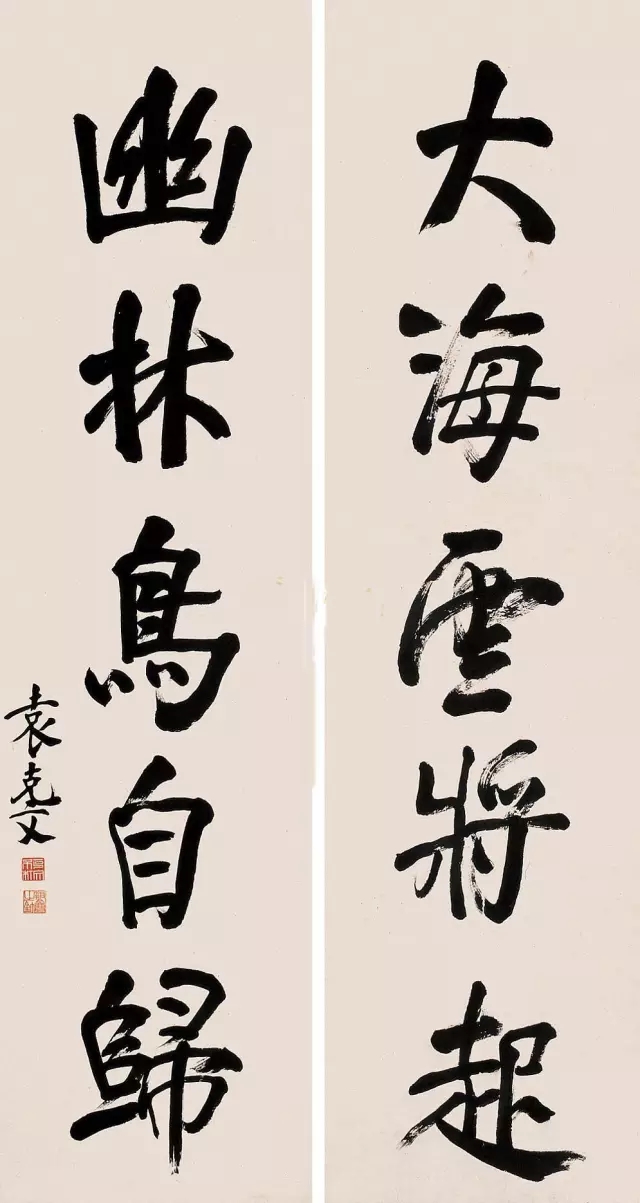 大海雲將起
幽林鳥自歸
袁克文